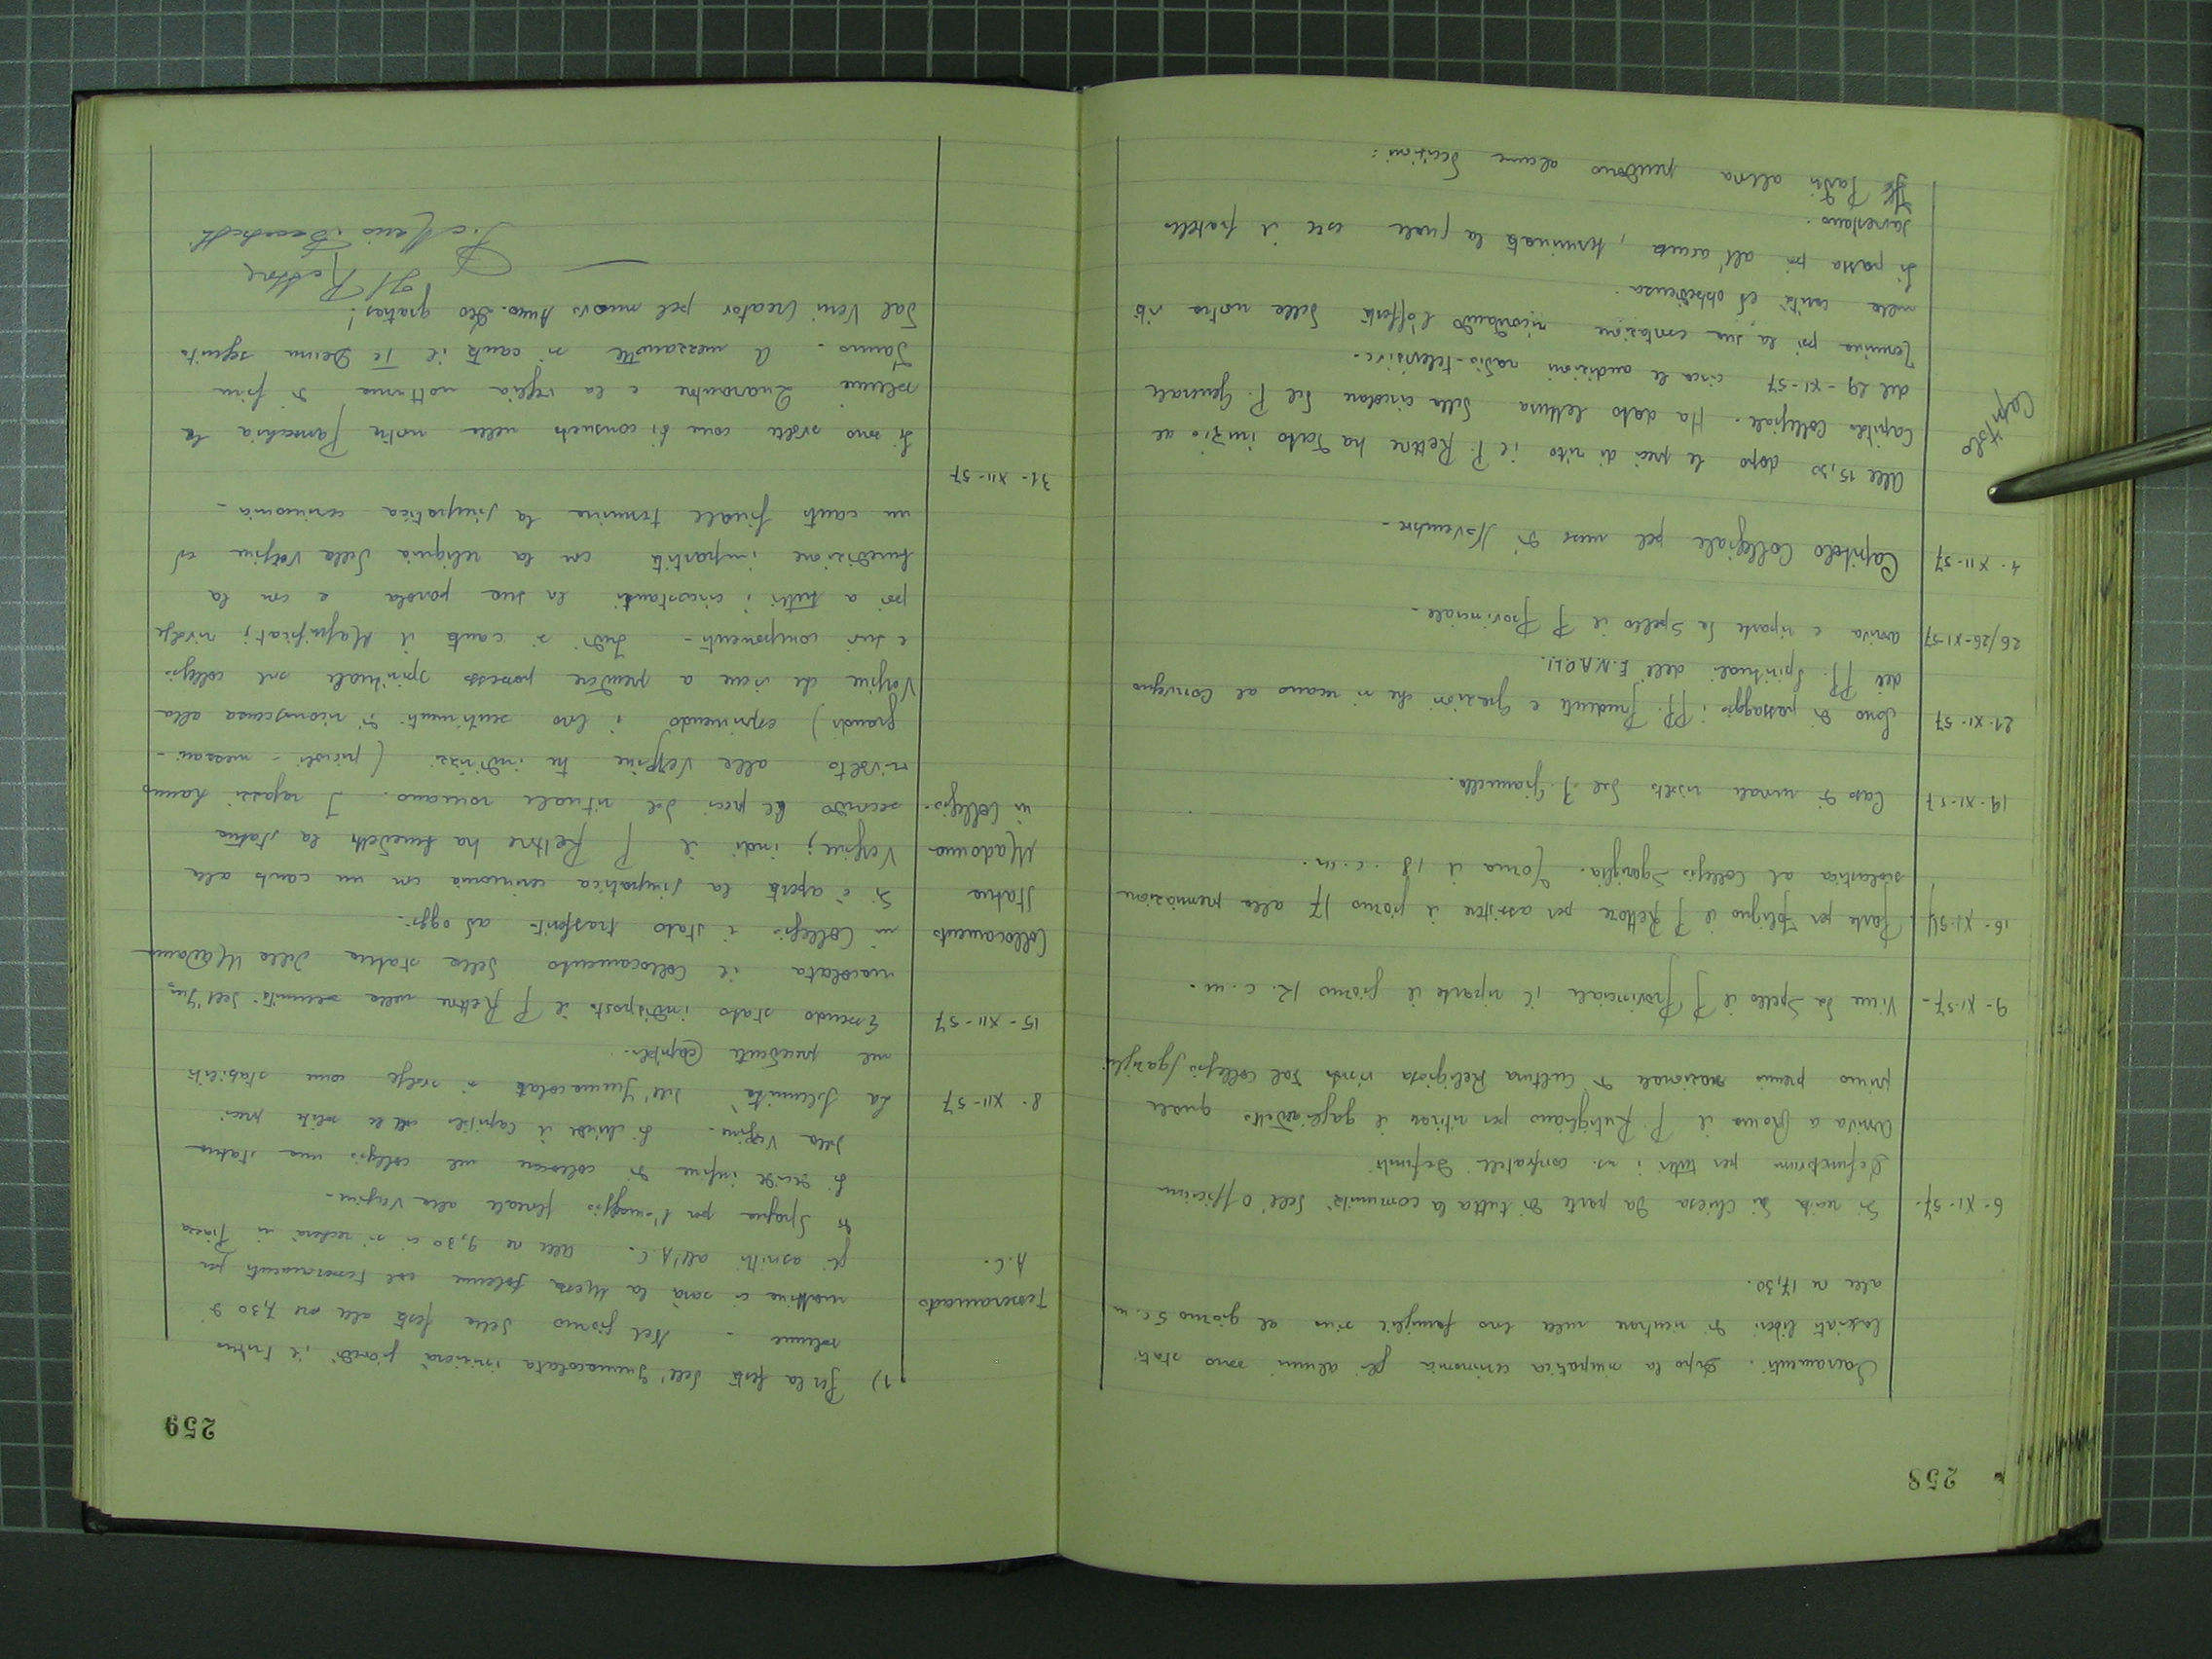 258
Sacramenti. Dopo la simpatica cerimonia gli alunni sono stati
lasciati liberi di rientrare nelle loro famiglie sino al giorno 5 c.m.
alle ore 17,30.
6-XI-57. Si recita in Chiesa da parte di tutta la comunità dell'Officium
Defunctorum per tutti i ns. confratelli defunti
Arriva a Roma il P. Rutigliano per ritirare il gagliardetto quale
primo premio nazionale di Cultura Religiosa vinto dal collegio Sgariglia
9-XI-57- Viene da Spello il P. Provinciale il riparte il giorno 12. c.m.
16-XI-57 Parte per Foligno il P. Rettore per assistere il giorno 17 alla premiazione
scolastica al Collegio Sgariglia. Torna il 18. c.m.
19-XI-57 Caso di morale risolto dal P.
21-XI-57 Sono di passaggio i PP. Prudente e Grazioli che si recano al Convegno
dei PP. Spirituali dell'E.N.A.O.L.I.
26/26-XI-57 arriva e riparte da Spello il P. Provinciale-
4-XII-57 Capitolo Collegiale pel mese di Novembre-
Capitolo
Alle 15,30 dopo le preci di rito il P. Rettore ha dato inizio al
Capitolo Collegiale. Ha dato lettura della circolare del P. Generale
del 29-XI-57 circa le audizioni radio-televisive.
Termina poi la sua esortazione ricordando l'offerta della nostra vita
nella carità ed obbedienza.
Si passa poi all'accusa, terminata la quale esce il fratello
Savrestano.
I Padri allora prendono alcune decisioni:
259
1) Per la festa dell'Immacolata inizierà giovedì il triduo
solenne - Nel giorno della festa alle ore 7,30 di
Tesseramento
mattina ci sarà la Messa solenne col tesseramento per
A.C.
gli ascritti all'A.C. Alle ore 9,30 ci si recherà in Piazza
di Spagna per l'omaggio floreale alla Vergine-
Si decide infine di collocare nel collegio una statua
della Vergine- Si chiude il capitolo colle solite preci
8-XII-57 La solennità dell'Immacolata si svolge come stabilito
nel precedente capitolo.
15-XII-57 Essendo stato indisposto il P. Rettore nella solennità dell'Im-
macolata il Collocamento della statua della Madonna
Collocamento in Collegio è stato trasferito ad oggi-
Statua Si è aperta la simpatica cerimonia con un canto alla
Madonna Vergine; indi il P. Rettore ha benedetto la statua
in Collegio. secondo le preci del rituale romano. I ragazzi hanno
rivolto alla Vergine tre indirizzi (piccoli - mezzani -
grandi) esprimendo i loro sentimenti di riconoscenza alla
Vergine che viene a prendere possesso spirituale sul collegio
e suoi componenti- Indi si canta il Magnificat; rivolge
poi a tutti i circostanti la sua parola e con la
benedizione impartita con la reliquia della Vergine ed
un canto finale termina la simpatica cerimonia-
31-XII-57
Si sono svolte come di consueto nella nostra Parrocchia le
solenni Quarantore e la veglia notturna di fine
d'anno. A mezzanotte si canta il Te Deum seguito
dal Veni Creator pel nuovo Anno. Deo gratias!
Il Rettore